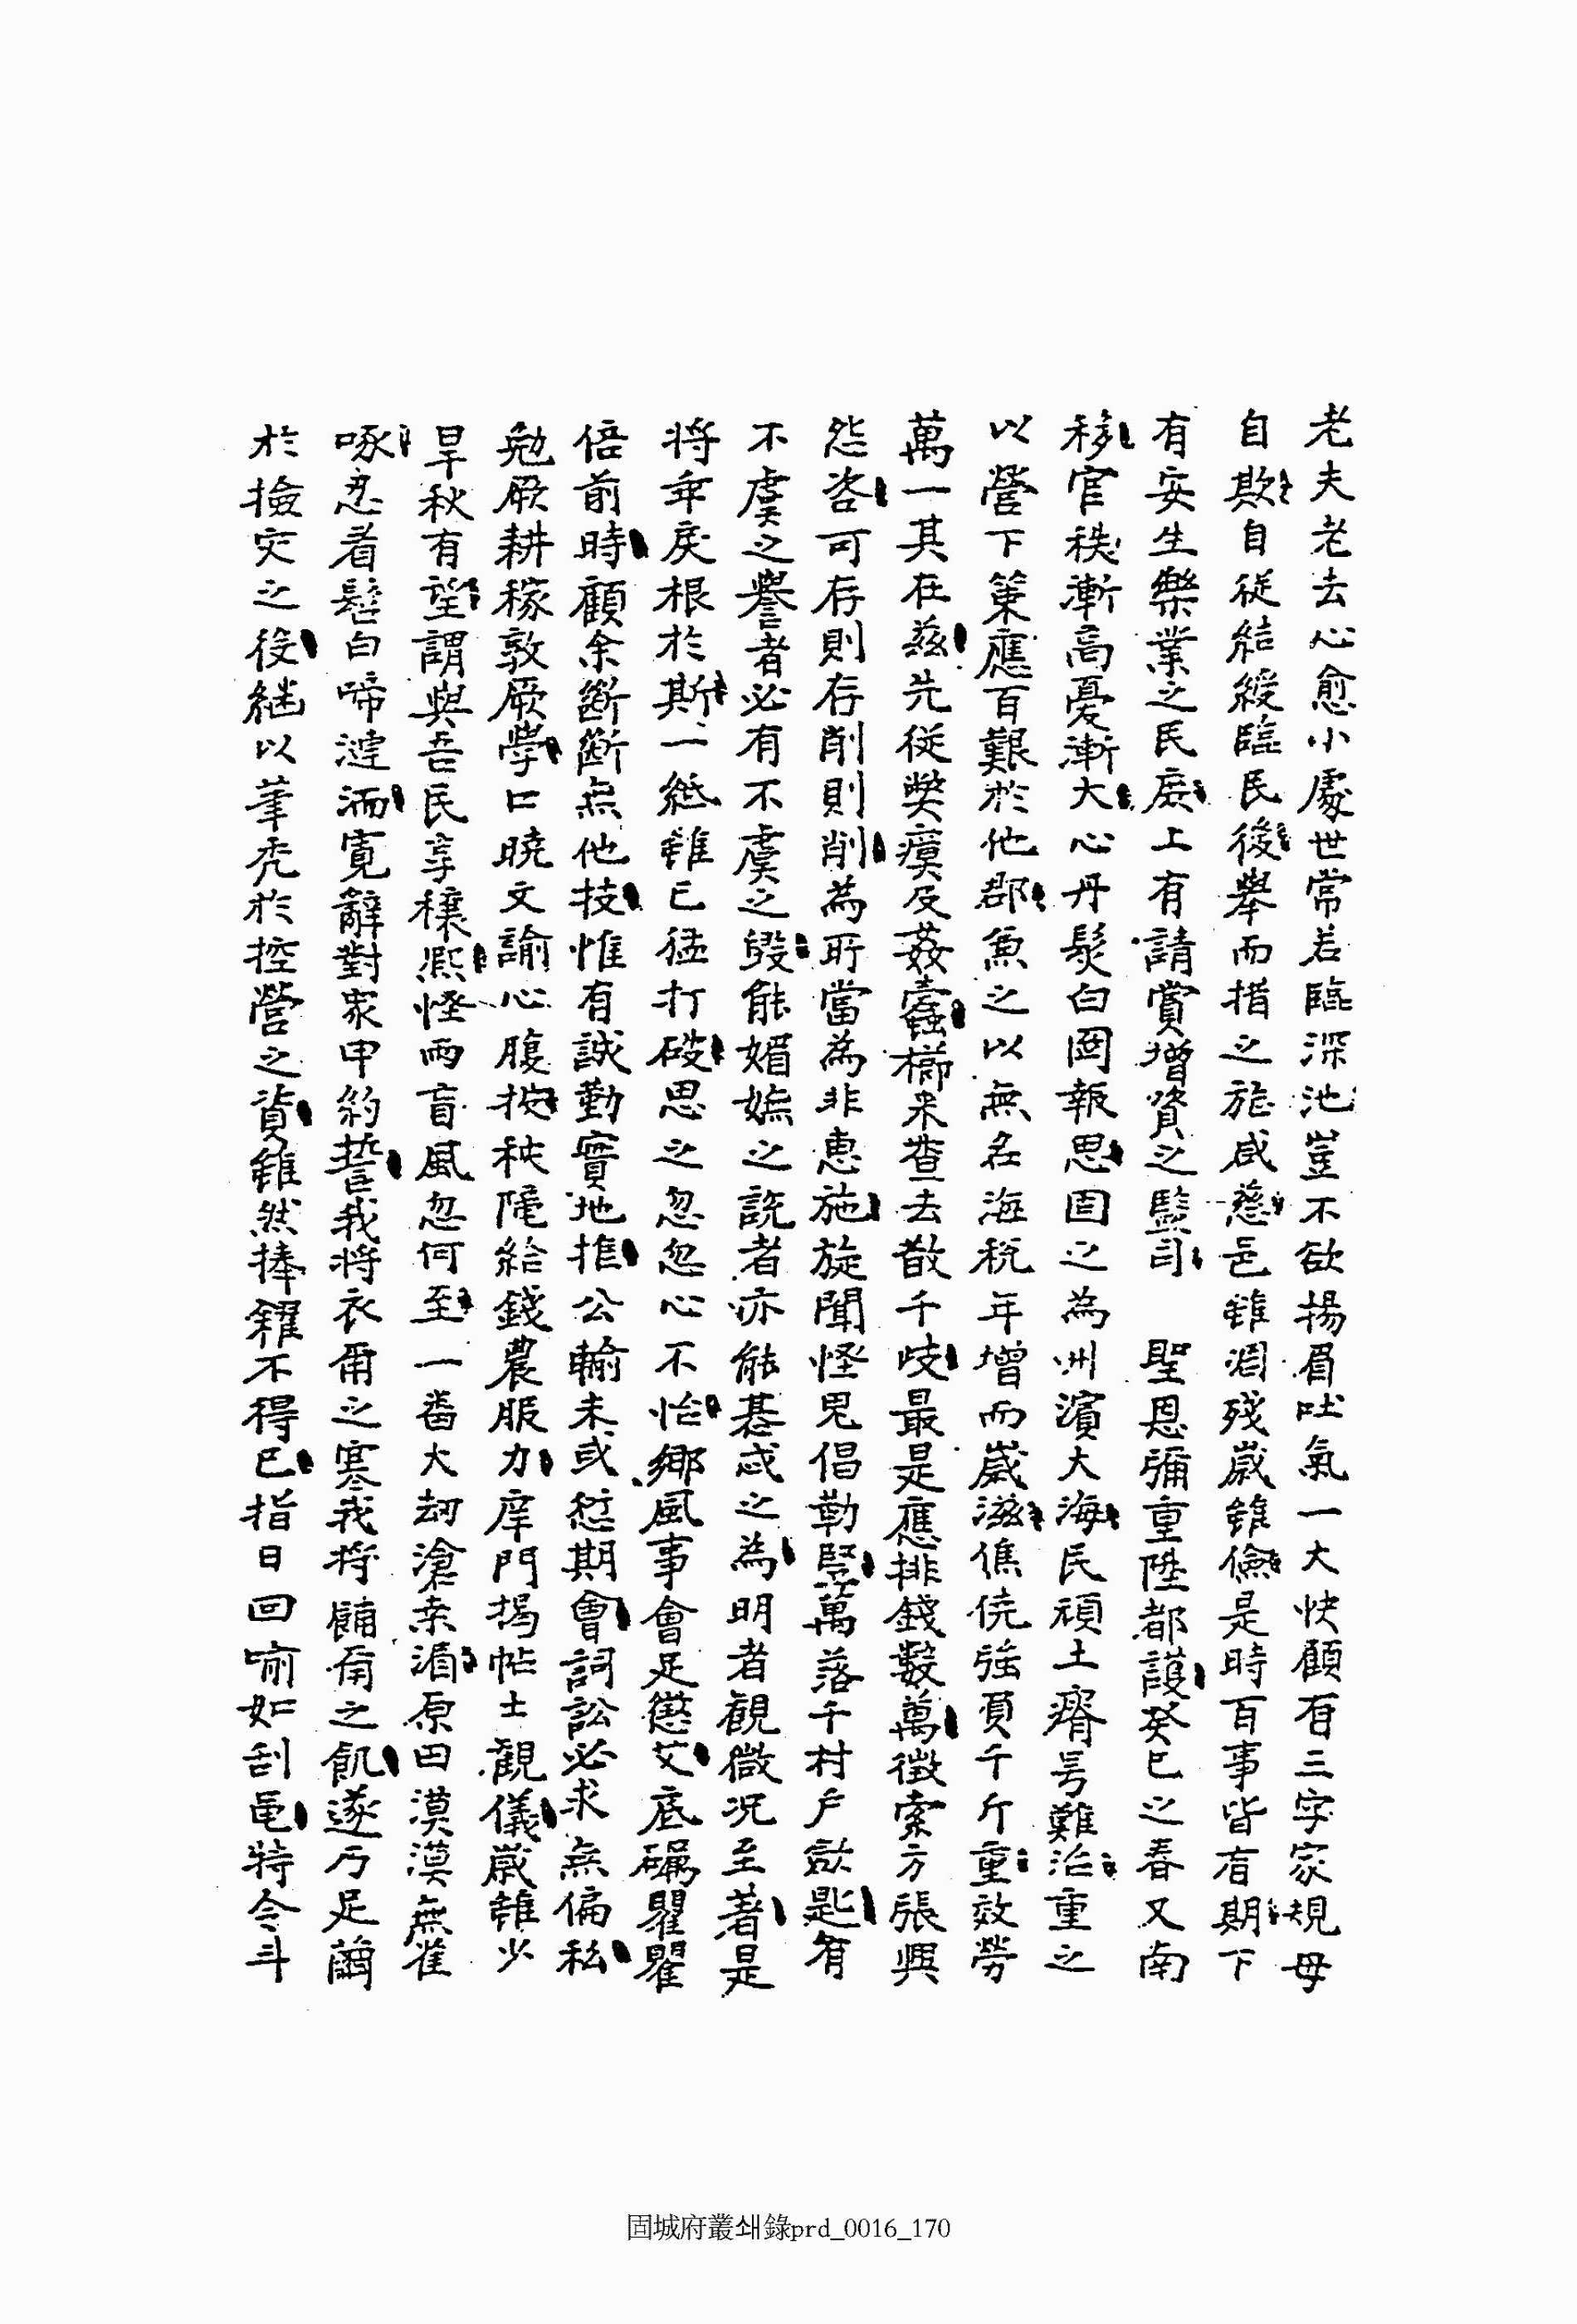 老夫老去心愈小處世常若臨深池豈不欲揚眉吐氣一大快顧有三字家規毋
自欺自從結綬臨民後擧而措之施威慈邑雖凋殘歲雖儉是時百事皆有期下
有安生樂業之民庶上有請賞增資之監司 聖恩彌重陞都護癸巳之春又南
移官秩漸高憂漸大心丹髮白圖報思固之爲州濱大海民頑土瘠号難治重之
以營下策應百艱於他郡兼之以無名海稅年增而歲滋僬僥强負千斤重效勞
萬一其在玆先從獘瘼及姦蠹櫛來查去散千歧最是應排錢數萬徵索方張興
怨咨可存則存削則削爲所當爲非惠施旋聞怪鬼倡勒竪萬落千村戶斂匙有
不虞之譽者必有不虞之毁能媚嫵之說者亦能惎忒之爲明者觀微况至著是
將年戾根於斯一紙雖已猛打破思之忽忽心不怡鄉風事會足懲艾底礪瞿瞿
倍前時顧余斷斷無他技惟有誠勤實地推公輸未或愆期會詞訟必求無偏私
勉厥耕稼敦厥學口曉文諭心腹披秧隴給錢農服力庠門揭帖士觀儀歲雖少
旱秋有望謂與吾民享穰熙怪雨盲風忽何至一番大刧滄桑湄原田漠漠無雀
啄忍看髫白啼漣洏寛辭對衆申約誓我將衣爾之寒我將餔爾之飢遂乃足繭
於撿灾之役継以筆禿於控營之資雖然捧糴不得已指日回喩如刮黽特令斗
固城府叢쇄錄prd_0016_170